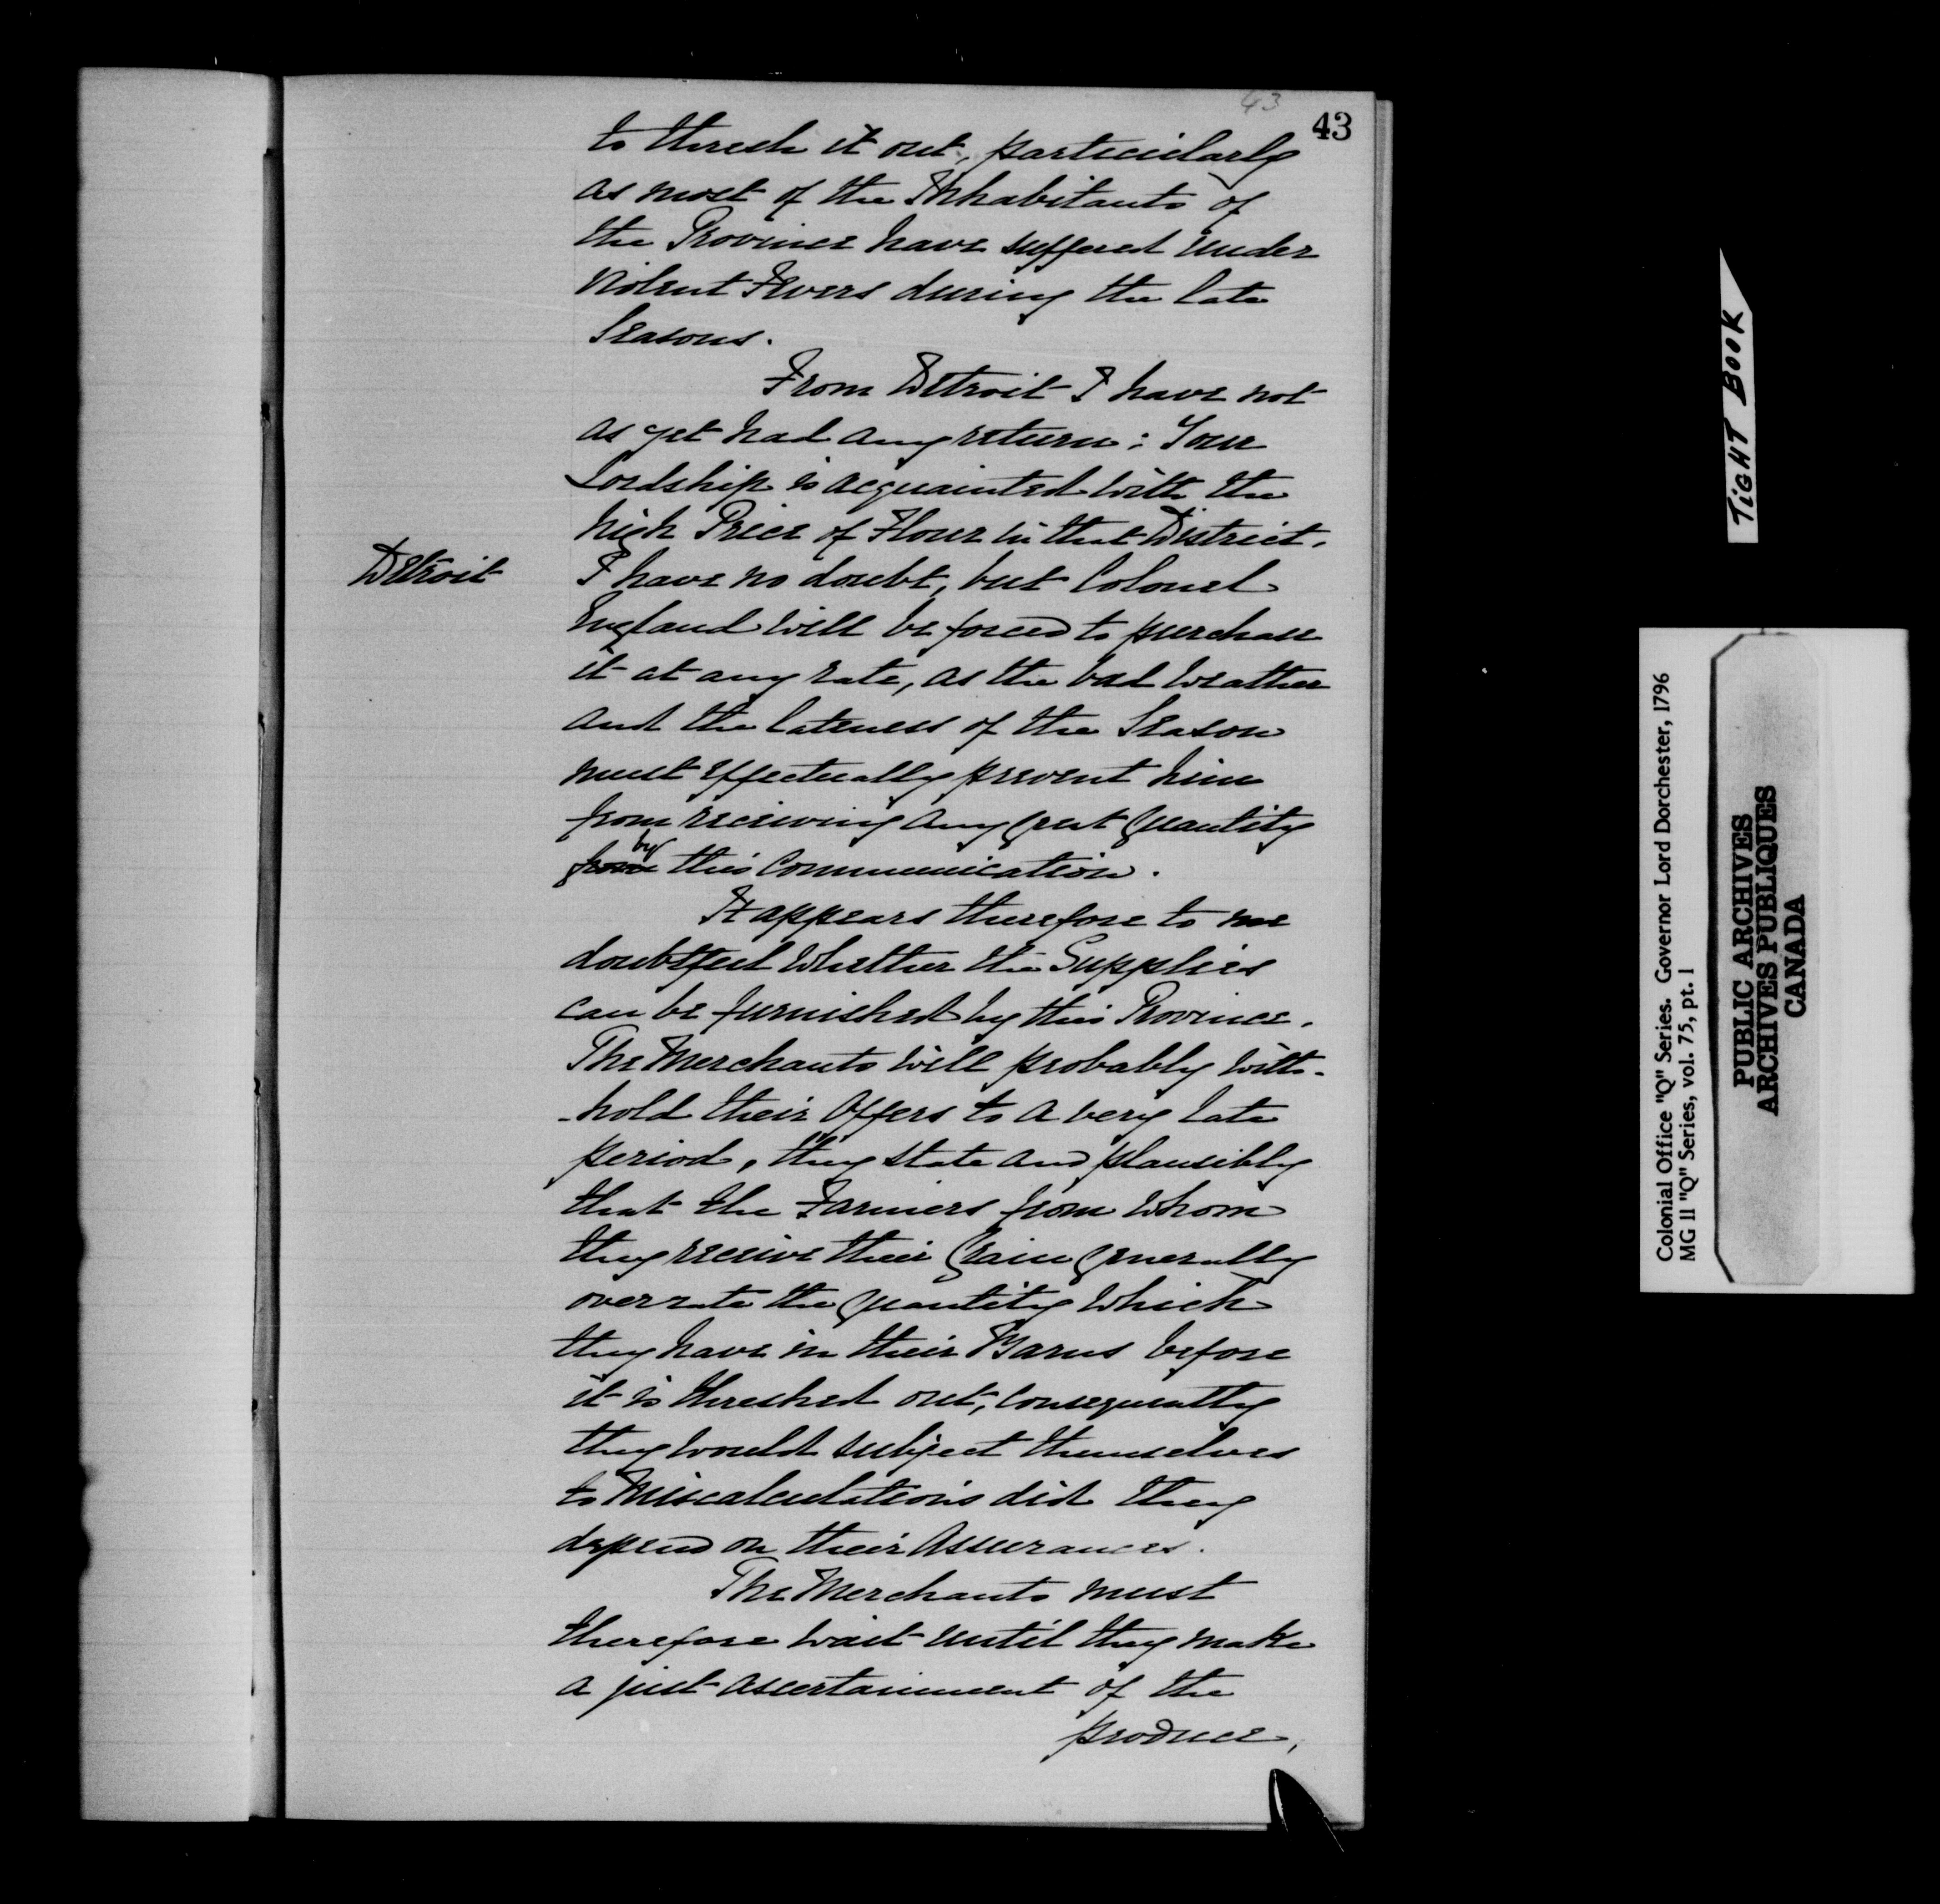 43
43
to thresh it out, particularly
as most of the Inhabitants of
the Province have suffered under
violent Fevers during the late
Seasons.
From Detroit I have not
as yet had any return: Your
Lordship is acquainted with the
high Price of Flour in that District.
Detroit
I have no doubt, but Colonel
England will be forced to purchase
it at any rate, as the bad weather
and the lateness of the Season
must effectually prevent him
from receiving any great Quantity
by
from this Communication.
It appears therefore to me
doubtful whether the Supplies
can be furnished by this Province.
The Merchants will probably with-
-hold their Offers to a very late
period, they state and plausibly
that the Farmers from whom
they receive their Grain generally
overrate the Quantity which
they have in their Barns before
it is threshed out, consequently
they would subject themselves
to Miscalculations did they
depend on their Assurances.
The Merchants must
therefore wait until they make
a just ascertainment of the
produce,
TIGHT BOOK
Colonial Office "Q" Series. Governor Lord Dorchester, 1796
MG 11 "Q" Series, vol. 75, pt. 1
PUBLIC ARCHIVES
ARCHIVES PUBLIQUES
CANADA